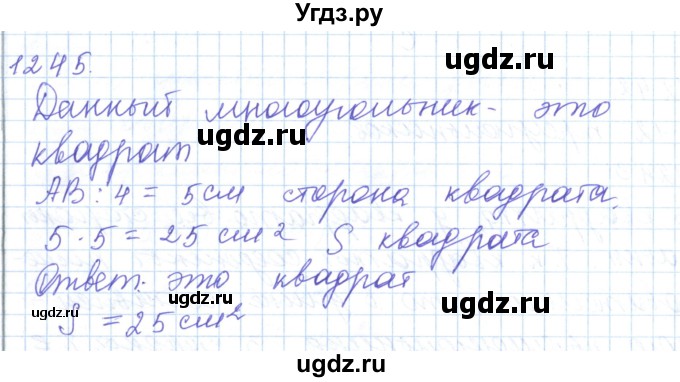 Угдз.ру
1245.
ugdz.ru
Данный многоугольник - это
ugdz.ru
квадрат
AB : 4 = 5 см сторона квадрата.
ugdz.ru
5 · 5 = 25 см² S квадрата
Ответ: это квадрат
ugdz.ru
S = 25 см²
ugdz.ru
ugdz.ru